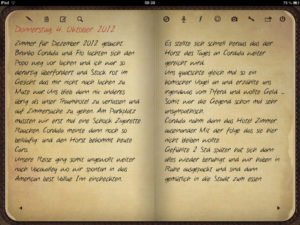 iPad
08:38
75 %
Donnerstag 4. Oktober 2012
Zimmer für Dezember 2012 gebucht.
Branko Cordula und Flo lachten sich den
Popo weg vor lachen und ich war so
derartig überfordert und Stock rot im
Gesicht das mir nicht nach lachen zu
Mute war. Uns blieb dann nix anderes
übrig als unser Traumhotel zu verlassen und
auf Zimmersuche zu gehen. Am Parkplatz
mussten wir erst mal eine Schock Zigarette
Rauchen Cordula meinte dann noch so
beiläufig und den Horst bekommt heute
Caro.
Unsere Reise ging somit ungewollt weiter
nach wir sponten in das
American best Value Inn eincheckten.
Es stellte sich schnell heraus das der
Horst des Tages an Cordula weiter
gereicht wird.
Uns quatschte gleich mal so ein
komischer Vogel an und erzählte uns
irgendwas vom Pferd und wollte Geld ...
Somit war die Gegend schon mal sehr
unsympathisch.
Cordula nahm dann das Hotel Zimmer
auseinander Mit der folge das sie hier
nicht bleiben wollte.
Gefühlte 2 Std später hat sich dann
alles wieder beruhigt und wir haben in
Ruhe ausgepackt und sind dann
gemütlich in die Stadt zum essen.